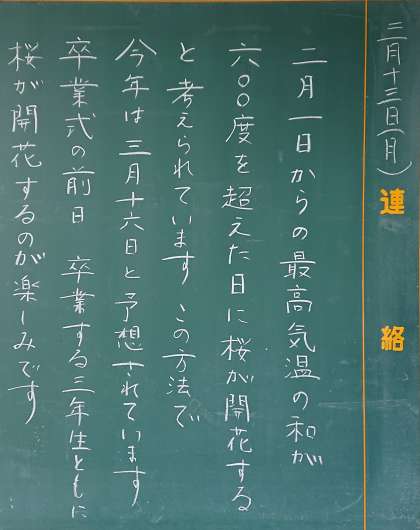 三月十三日(月)
連絡
二月一日からの最高気温の和が
六〇〇度を超えた日に桜が開花する
と考えられています この方法で
今年は三月十六日と予想されています
卒業式の前日 卒業する三年生ともに
桜が開花するのが楽しみです